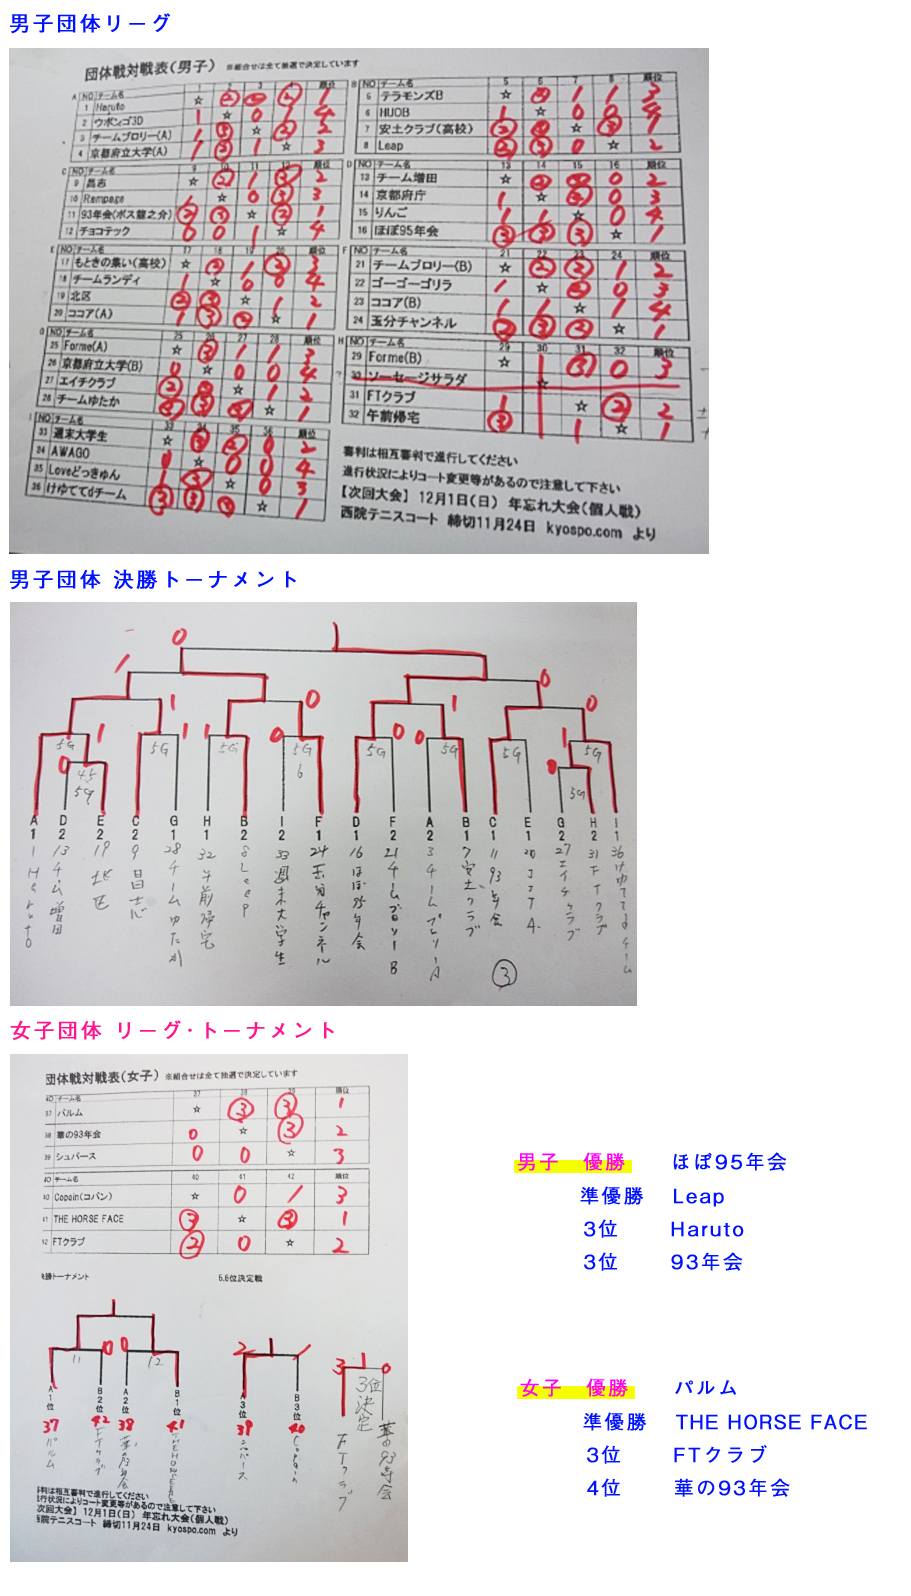 男子団体リーグ
団体戦対戦表(男子) ※組合せは全て抽選で決定しています
A NO チーム名 1 2 3 4 順位
1 Haruto ☆ ② ③ ② 1
2 ウボンゴ3D 1 ☆ 0 1 4
3 チームブロリー(A) 1 ③ ☆ ② 2
4 京都府立大学(A) 1 ② 1 ☆ 3
B NO チーム名 5 6 7 8 順位
5 テラモンズB ☆ ② 1 1 3
6 HUOB 1 ☆ 0 0 4
7 安土クラブ(高校) ② ③ ☆ ③ 1
8 Leap ② ③ 0 ☆ 2
C NO チーム名 9 10 11 12 順位
9 昌志 ☆ ② 1 ③ 2
10 Rampage 1 ☆ 0 ③ 3
11 93年会(ボス龍之介) ② ③ ☆ ② 1
12 チョコテック 0 0 1 ☆ 4
D NO チーム名 13 14 15 16 順位
13 チーム増田 ☆ ② ② 0 2
14 京都府庁 1 ☆ ② 0 3
15 りんご 1 1 ☆ 0 4
16 ほぼ95年会 ③ ③ ③ ☆ 1
E NO チーム名 17 18 19 20 順位
17 もときの集い(高校) ☆ ② 1 ② 3
18 チームランディ 1 ☆ 0 0 4
19 北区 ② ③ ☆ 1 2
20 ココア(A) 1 ③ ② ☆ 1
F NO チーム名 21 22 23 24 順位
21 チームブロリー(B) ☆ ② ② 1 2
22 ゴーゴーゴリラ 1 ☆ ② 0 3
23 ココア(B) 1 1 ☆ 1 4
24 玉分チャンネル ② ③ ② ☆ 1
G NO チーム名 25 26 27 28 順位
25 Forme(A) ☆ ③ 1 1 3
26 京都府立大学(B) 0 ☆ 0 0 4
27 エイチクラブ ② ③ ☆ 1 2
28 チームゆたか ③ ③ ③ ☆ 1
H NO チーム名 29 30 31 32 順位
29 Forme(B) ☆ ③ 0 3
30 ソーセージサラダ ☆
31 FTクラブ 1 ☆ ② 2
32 午前帰宅 ③ 1 ☆ 1
I NO チーム名 33 34 35 36 順位
33 週末大学生 ☆ ③ ② 0 2
34 AWAGO 0 ☆ 0 0 4
35 Loveどっきゅん 1 ③ ☆ 0 3
36 けゆててdチーム ③ ③ ③ ☆ 1
審判は相互審判で進行してください
進行状況によりコート変更等があるので注意して下さい
【次回大会】 12月1日(日) 年忘れ大会(個人戦)
西院テニスコート 締切11月24日 kyospo.com より
男子団体 決勝トーナメント
0 1
1 0
1 0 1 0
1 1 1 0 0 0 1
5G 5G 5G 5G 5G 5G 5G 5G
0 45 5G 6 0 5G
A1 D2 E2 C2 G1 H1 B2 I2 F1 D1 F2 A2 B1 C1 E1 G2 H2 I1
1 Haruto
13 チーム増田
19 北区
9 昌志
28 チームゆたか
32 午前帰宅
8 Leap
33 週末大学生
24 玉分チャンネル
16 ほぼ95年会
21 チームブロリーB
3 チームブロリーA
7 安土クラブ
11 93年会
20 ココアA
27 エイチクラブ
31 FTクラブ
36 けゆててdチーム
③
女子団体 リーグ・トーナメント
団体戦対戦表(女子) ※組合せは全て抽選で決定しています
チーム名 37 38 39 順位
37 パルム ☆ ③ ③ 1
38 華の93年会 0 ☆ ③ 2
39 シュパース 0 0 ☆ 3
チーム名 40 41 42 順位
40 Copain(コパン) ☆ 0 1 3
41 THE HORSE FACE ③ ☆ ③ 1
42 FTクラブ ② 0 ☆ 2
決勝トーナメント 5.6位決定戦
1
0 0 2 1 1 3 1 0
11 12 3位決定
A1位 B2位 A2位 B1位 A3位 B3位
37 42 38 41 39 40
パルム
FTクラブ
華の93年会
THE HORSE FACE
シュパース
Copain
FTクラブ
華の93年会
審判は相互審判で進行してください
進行状況によりコート変更等があるので注意して下さい
次回大会】 12月1日(日) 年忘れ大会(個人戦)
西院テニスコート 締切11月24日 kyospo.com より
男子 優勝 ほぼ95年会
準優勝 Leap
3位 Haruto
3位 93年会
女子 優勝 パルム
準優勝 THE HORSE FACE
3位 FTクラブ
4位 華の93年会